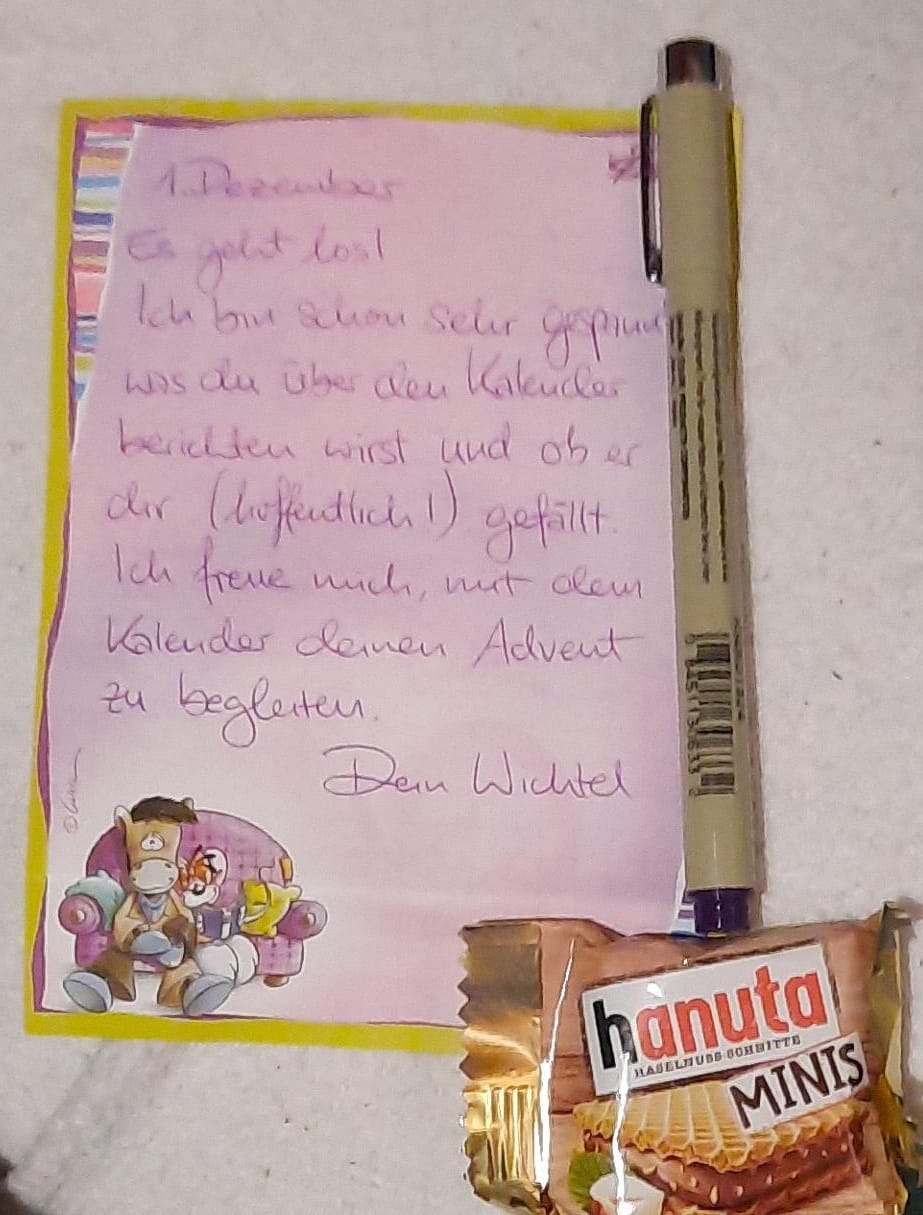 1. Dezember
Es geht los!
Ich bin schon sehr gespann
was du über den Kalender
berichten wirst und ob er
dir (hoffentlich!) gefällt.
Ich freue mich, mit dem
Kalender deinen Advent
zu begleiten.
Dein Wichtel
hanuta
HASELNUSS-SCHNITTE
MINIS